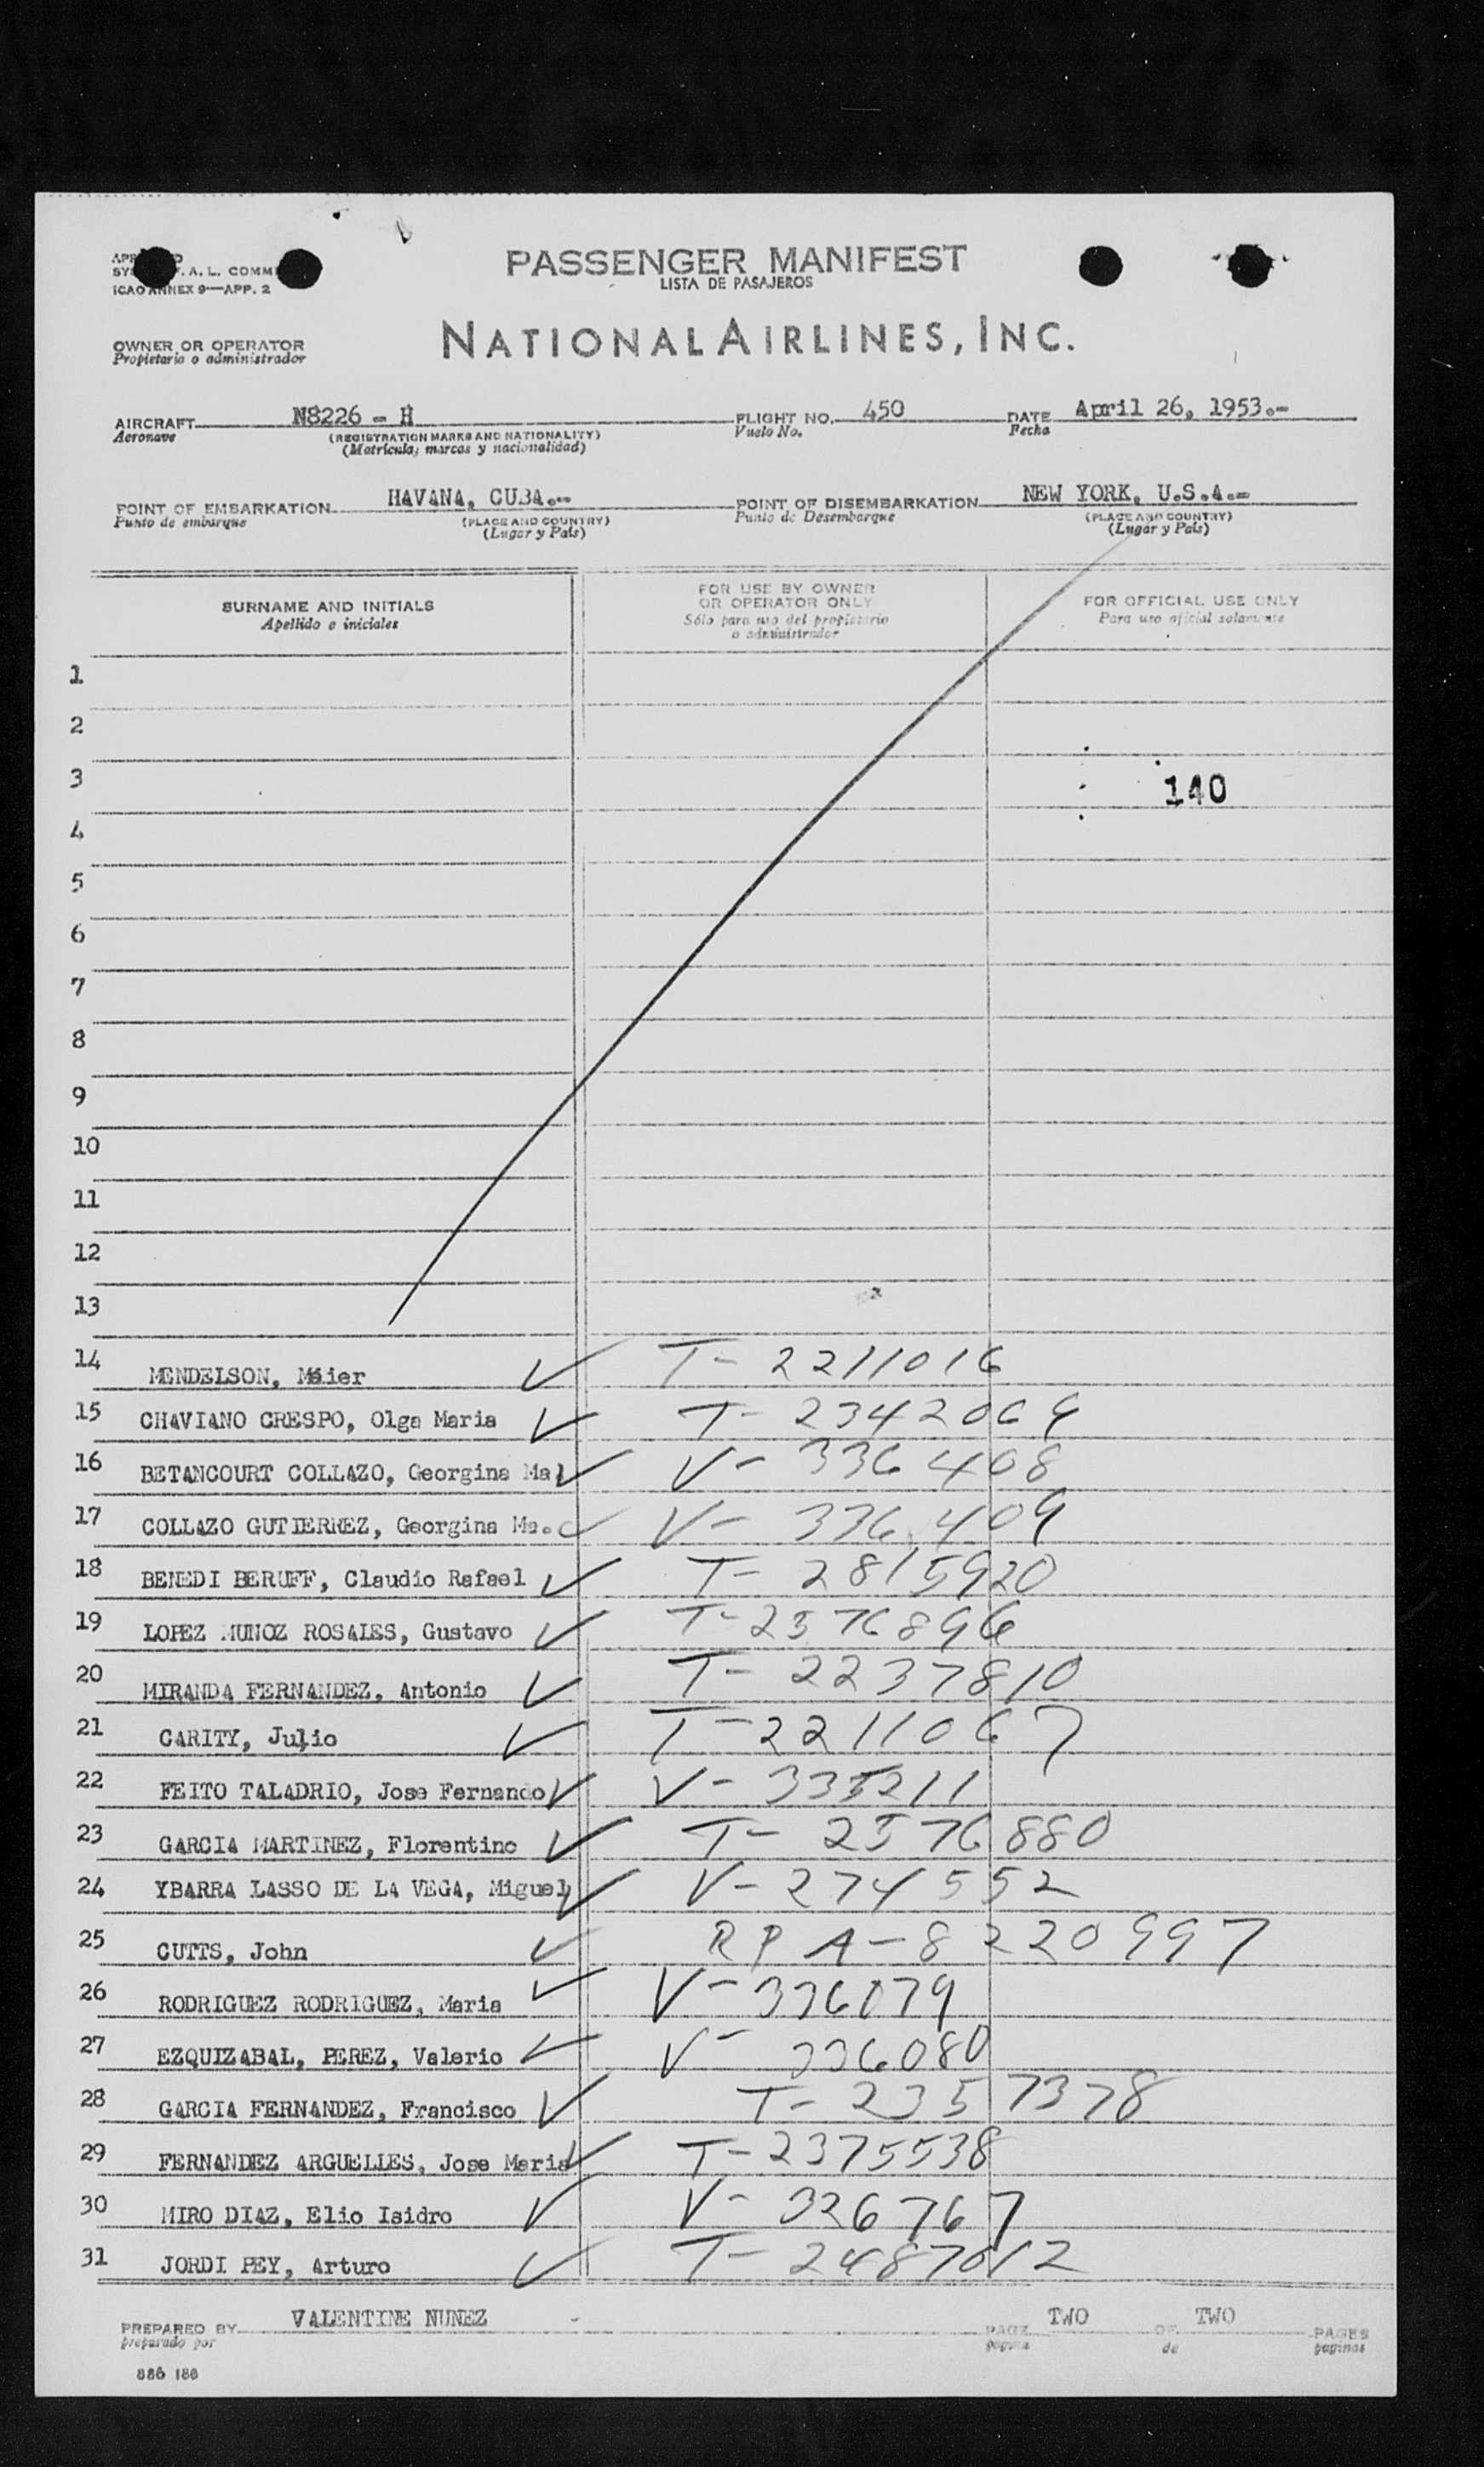 PASSENGER MANIFEST
LISTA DE PASAJEROS
A. L. COMM
ICAO ANNEX 9—APP. 2
OWNER OR OPERATOR
Propietario o administrador
NATIONAL AIRLINES, INC.
AIRCRAFT N8226 - H FLIGHT NO. 450 DATE April 26, 1953.-
Aeronave (REGISTRATION MARKS AND NATIONALITY) Vuelo No. Fecha
(Matrícula; marcas y nacionalidad)
POINT OF EMBARKATION HAVANA, CUBA.-- POINT OF DISEMBARKATION NEW YORK, U.S.A.--
Punto de embarque (PLACE AND COUNTRY) Punto de Desembarque (PLACE AND COUNTRY)
(Lugar y País) (Lugar y País)
SURNAME AND INITIALS FOR USE BY OWNER OR OPERATOR ONLY FOR OFFICIAL USE ONLY
Apellido e iniciales Sólo para uso del propietario o administrador Para uso oficial solamente
1
2
3 140
4
5
6
7
8
9
10
11
12
13
14 MENDELSON, Maier T- 2211016
15 CHAVIANO CRESPO, Olga Maria T- 2342069
16 BETANCOURT COLLAZO, Georgina Ma V- 336408
17 COLLAZO GUTIERREZ, Georgina Ma. V- 336409
18 BENEDI BERUFF, Claudio Rafael T- 2815920
19 LOPEZ MUNOZ ROSALES, Gustavo T-2576896
20 MIRANDA FERNANDEZ, Antonio T- 2237810
21 CARITY, Julio T-2211067
22 FEITO TALADRIO, Jose Fernando V- 335211
23 GARCIA MARTINEZ, Florentino T- 2576880
24 YBARRA LASSO DE LA VEGA, Miguel V-274552
25 CUTTS, John RP A-8220997
26 RODRIGUEZ RODRIGUEZ, Maria V-336079
27 EZQUIZABAL, PEREZ, Valerio V- 336080
28 GARCIA FERNANDEZ, Francisco T- 2357378
29 FERNANDEZ ARGUELLES, Jose Maria T-2375538
30 MIRO DIAZ, Elio Isidro V- 326767
31 JORDI PEY, Arturo T- 2487012
PREPARED BY VALENTINE NUNEZ PAGE TWO OF TWO PAGES
preparado por página de paginas
886 186